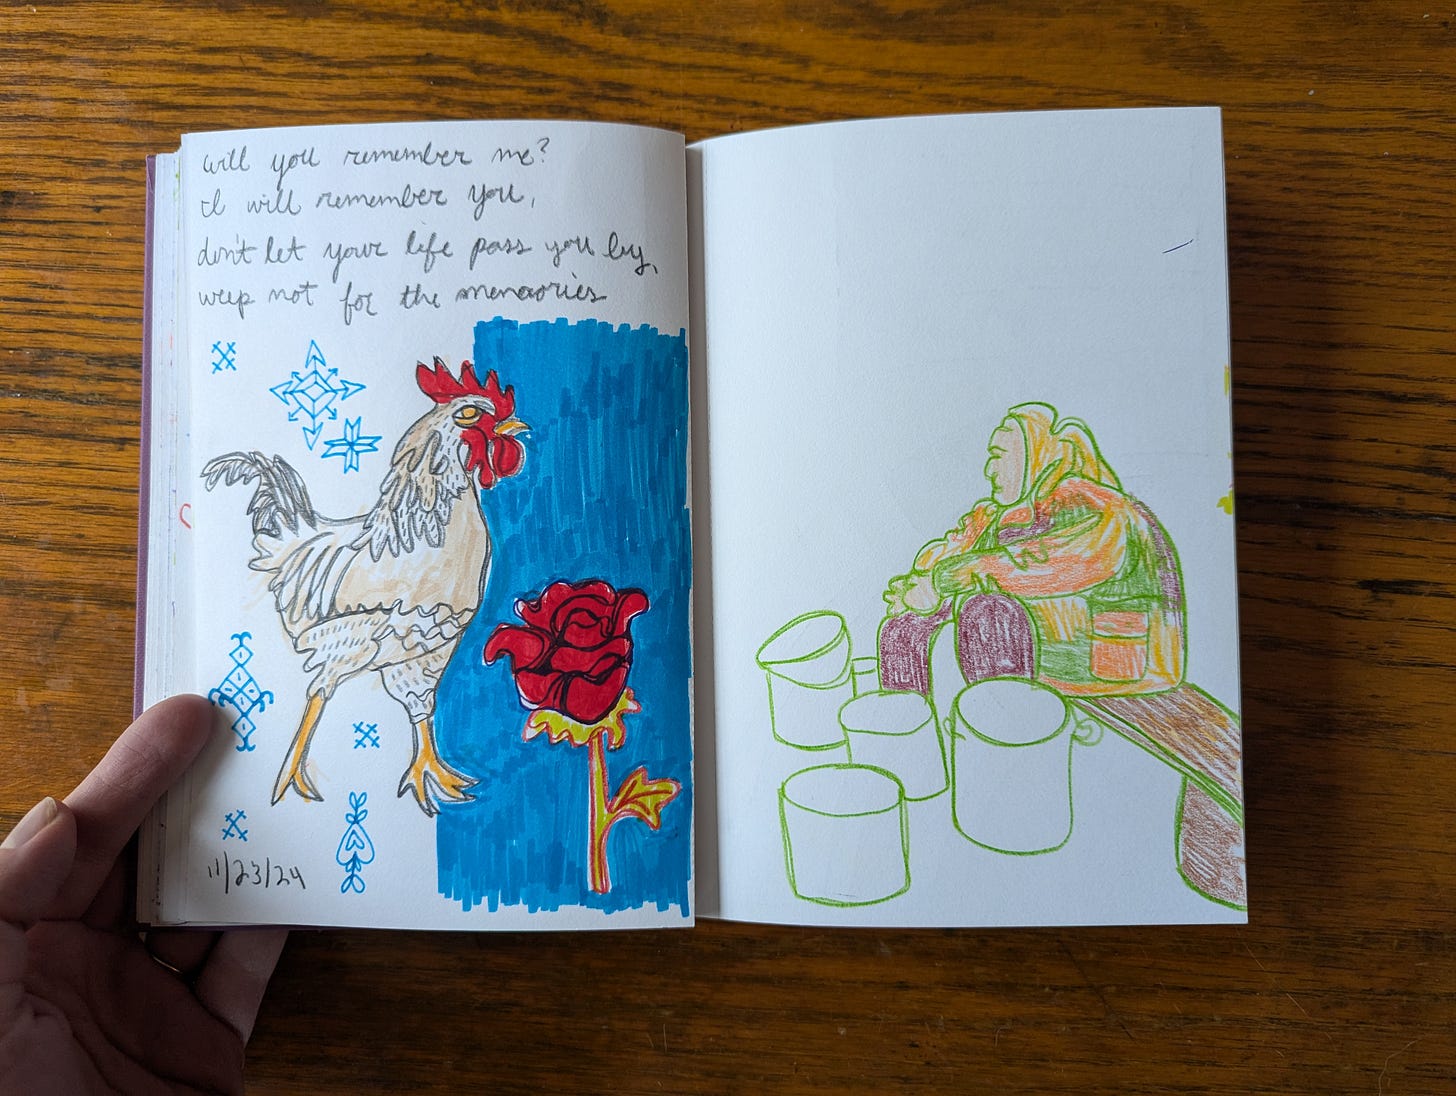 will you remember me?
I will remember you,
don't let your life pass you by,
weep not for the memories
11/23/24